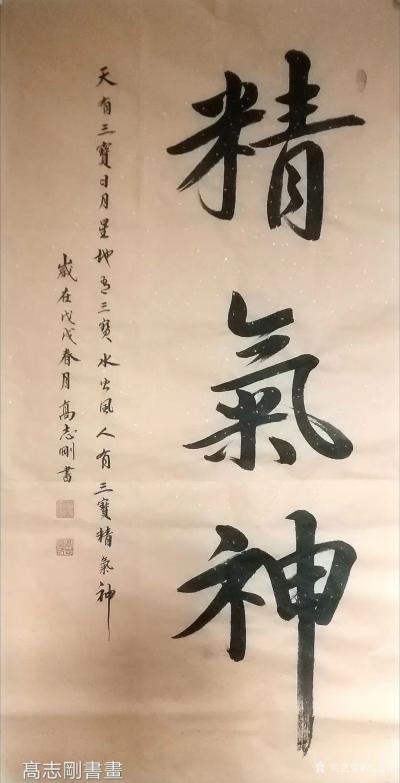 精氣神
天有三寶日月星地有三寶水火風人有三寶精氣神
歲在戊戌春月高志剛書
髙志剛書畫